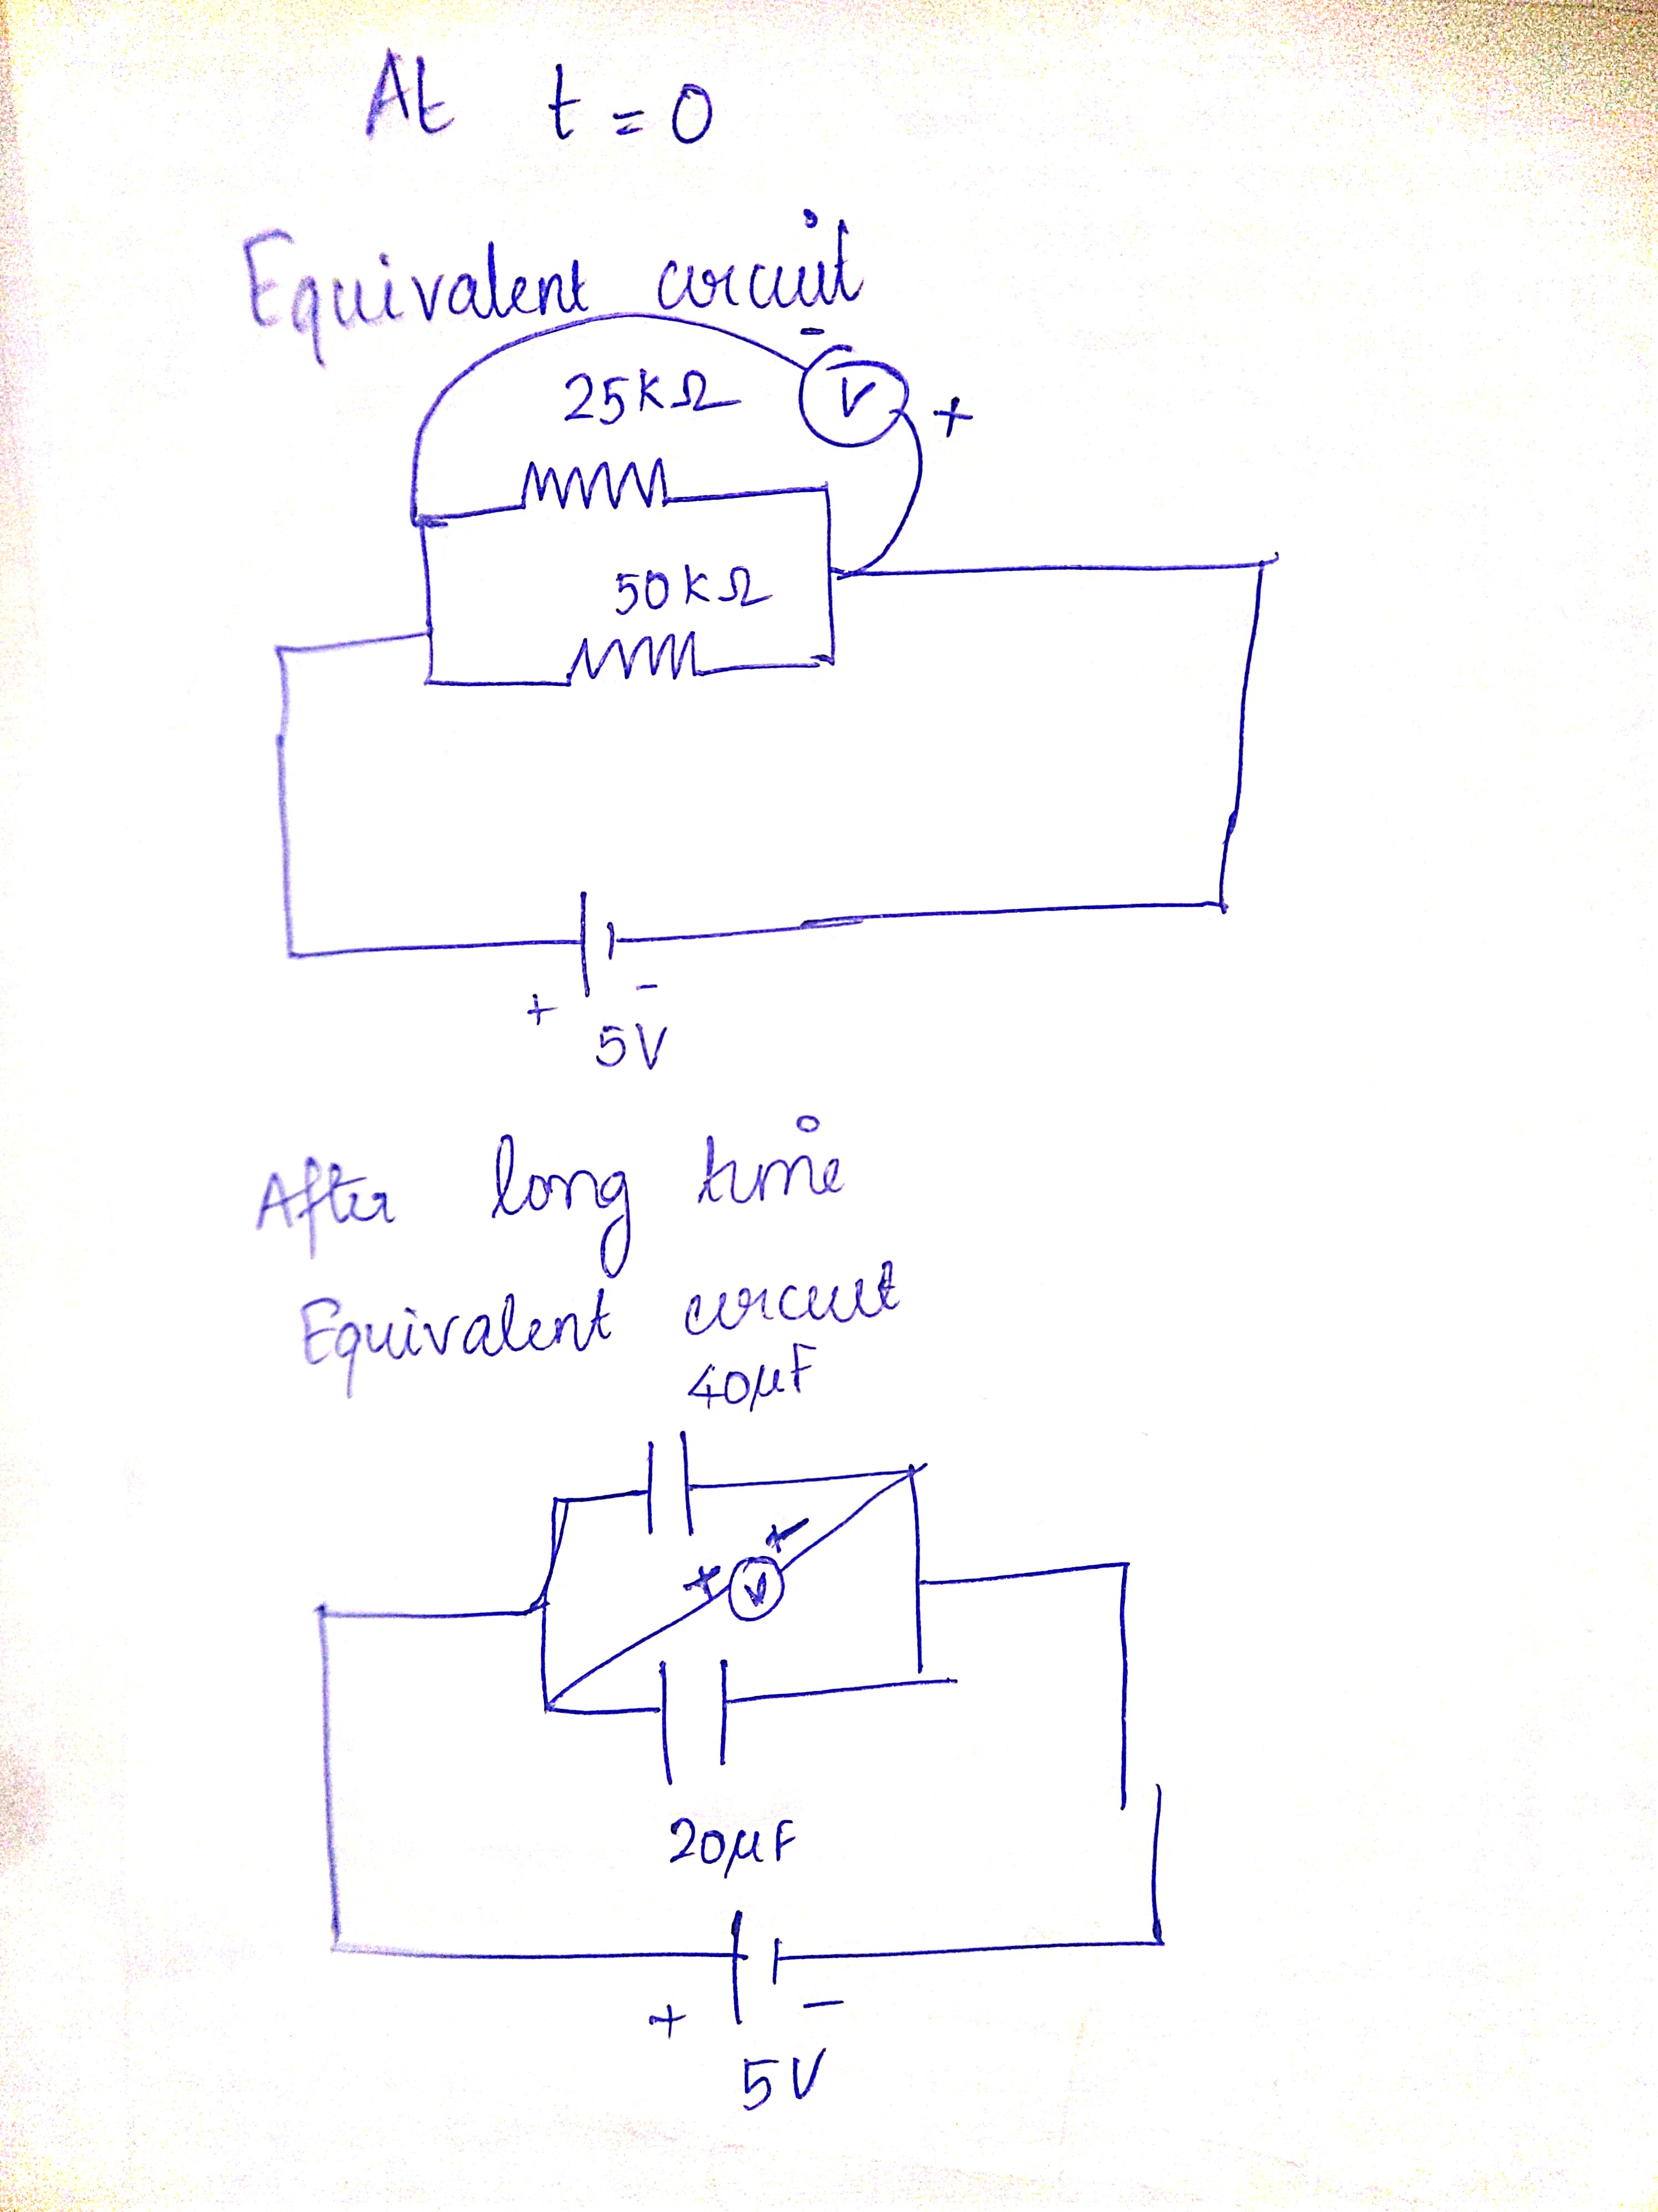 At t = 0
Equivalent circuit
-
25KΩ
V
+
50KΩ
+
-
5V
After long time
Equivalent circuit
40μF
+
+
V
20μF
+
-
5V